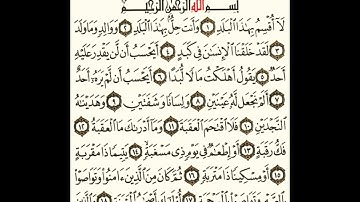 بِسْمِ اللَّهِ الرَّحْمَٰنِ الرَّحِيمِ
لَا أُقْسِمُ بِهَٰذَا الْبَلَدِ ١ وَأَنتَ حِلٌّ بِهَٰذَا الْبَلَدِ ٢ وَوَالِدٍ وَمَا وَلَدَ
٣ لَقَدْ خَلَقْنَا الْإِنسَانَ فِي كَبَدٍ ٤ أَيَحْسَبُ أَن لَّن يَقْدِرَ عَلَيْهِ
أَحَدٌ ٥ يَقُولُ أَهْلَكْتُ مَالًا لُّبَدًا ٦ أَيَحْسَبُ أَن لَّمْ يَرَهُ أَحَدٌ
٧ أَلَمْ نَجْعَل لَّهُ عَيْنَيْنِ ٨ وَلِسَانًا وَشَفَتَيْنِ ٩ وَهَدَيْنَاهُ
النَّجْدَيْنِ ١٠ فَلَا اقْتَحَمَ الْعَقَبَةَ ١١ وَمَا أَدْرَاكَ مَا الْعَقَبَةُ ١٢
فَكُّ رَقَبَةٍ ١٣ أَوْ إِطْعَامٌ فِي يَوْمٍ ذِي مَسْغَبَةٍ ١٤ يَتِيمًا ذَا مَقْرَبَةٍ
١٥ أَوْ مِسْكِينًا ذَا مَتْرَبَةٍ ١٦ ثُمَّ كَانَ مِنَ الَّذِينَ آمَنُوا وَتَوَاصَوْا